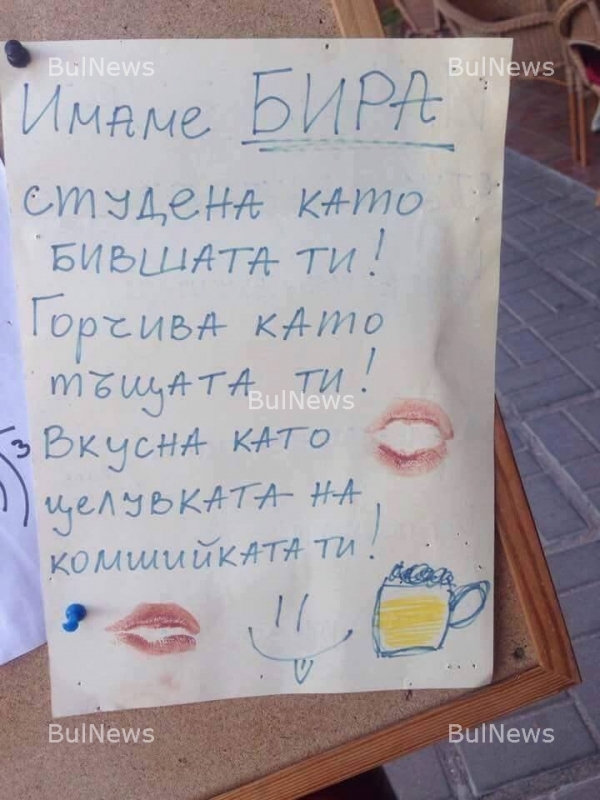 BulNews BulNews
Имаме БИРА
студена като
бившата ти!
Горчива като
тъщата ти!
BulNews
Вкусна като
целувката на
комшийката ти!
BulNews BulNews